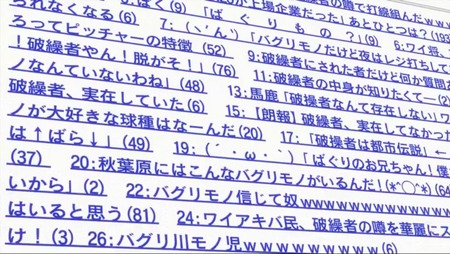 られなくなる(6) 6:ばく(9) 「 の上場企業だった」あとひとつは?(193
7:(、'ん') 「ばぐりもの？」(9) 8:
ろってピッチャーの特徴 (52) 9:破繰者にされた者だけど何か質問
！破繰者やん！脱がそ！」(76) 11:破繰者の中身が知りたくて―(2)
ノなんていないわね」(48) 13:馬鹿「破繰者なんて存在しない」ワ
破繰者、実在していた(6) 15:【朗報】破繰者、実在してなかった
ノが大好きな球種はなーんだ(20) 17:「破繰者は都市伝説」←
は↑ばら↓」(49) 19:(´・ω・｀)「ばぐりのお兄ちゃん！僕
(37) 20:秋葉原にはこんなバグリモノがいるんだ！(*^○^*)(64)
いから」(2) 22:バグリモノ信じて奴wwwwwwwwwwwwwwww
はいると思う(81) 24:ワイアキバ民、破繰者の噂を華麗にス
け！(3) 26:バグリ川モノ児wwwwwwwww(6)